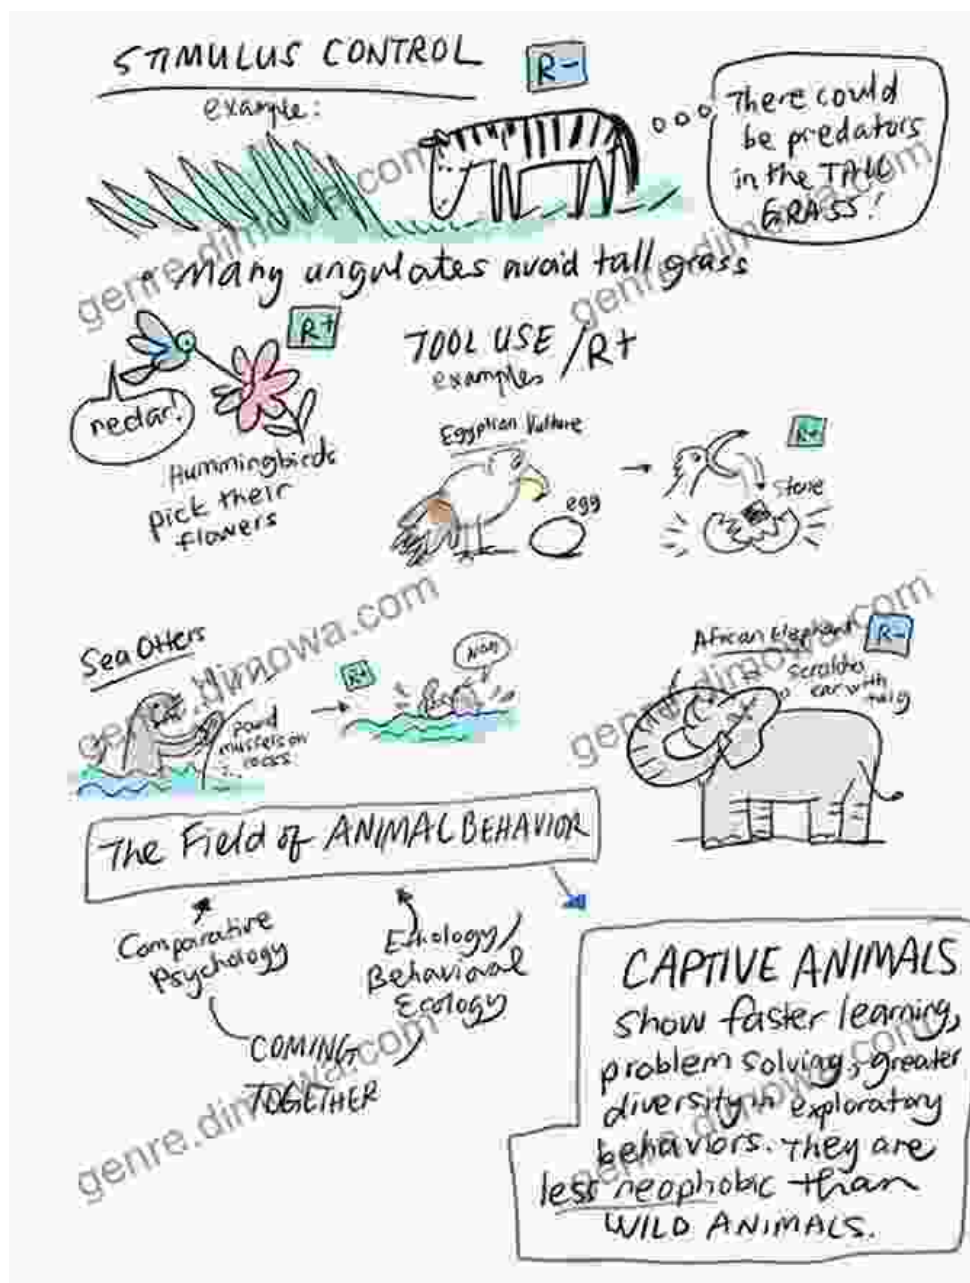 STIMULUS CONTROL
R-
example:
There could
be predators
in the TALL
GRASS!
• Many ungulates avoid tall grass
R+
nectar!
Hummingbirds
pick their
flowers
TOOL USE / R+
examples
Egyptian Vulture
egg
R+
stone
Sea Otters
pound
mussels on
rocks
R+
Nom
African Elephant
R-
scratches
ear with
twig
The Field of ANIMAL BEHAVIOR
Comparative
Psychology
Ethology/
Behavioral
Ecology
COMING
TOGETHER
CAPTIVE ANIMALS
show faster learning,
problem solving, greater
diversity in exploratory
behaviors. They are
less neophobic than
WILD ANIMALS.
genre.dimowa.com
genre.dimowa.com
genre.dimowa.com
genre.dimowa.com
genre.dimowa.com
genre.dimowa.com